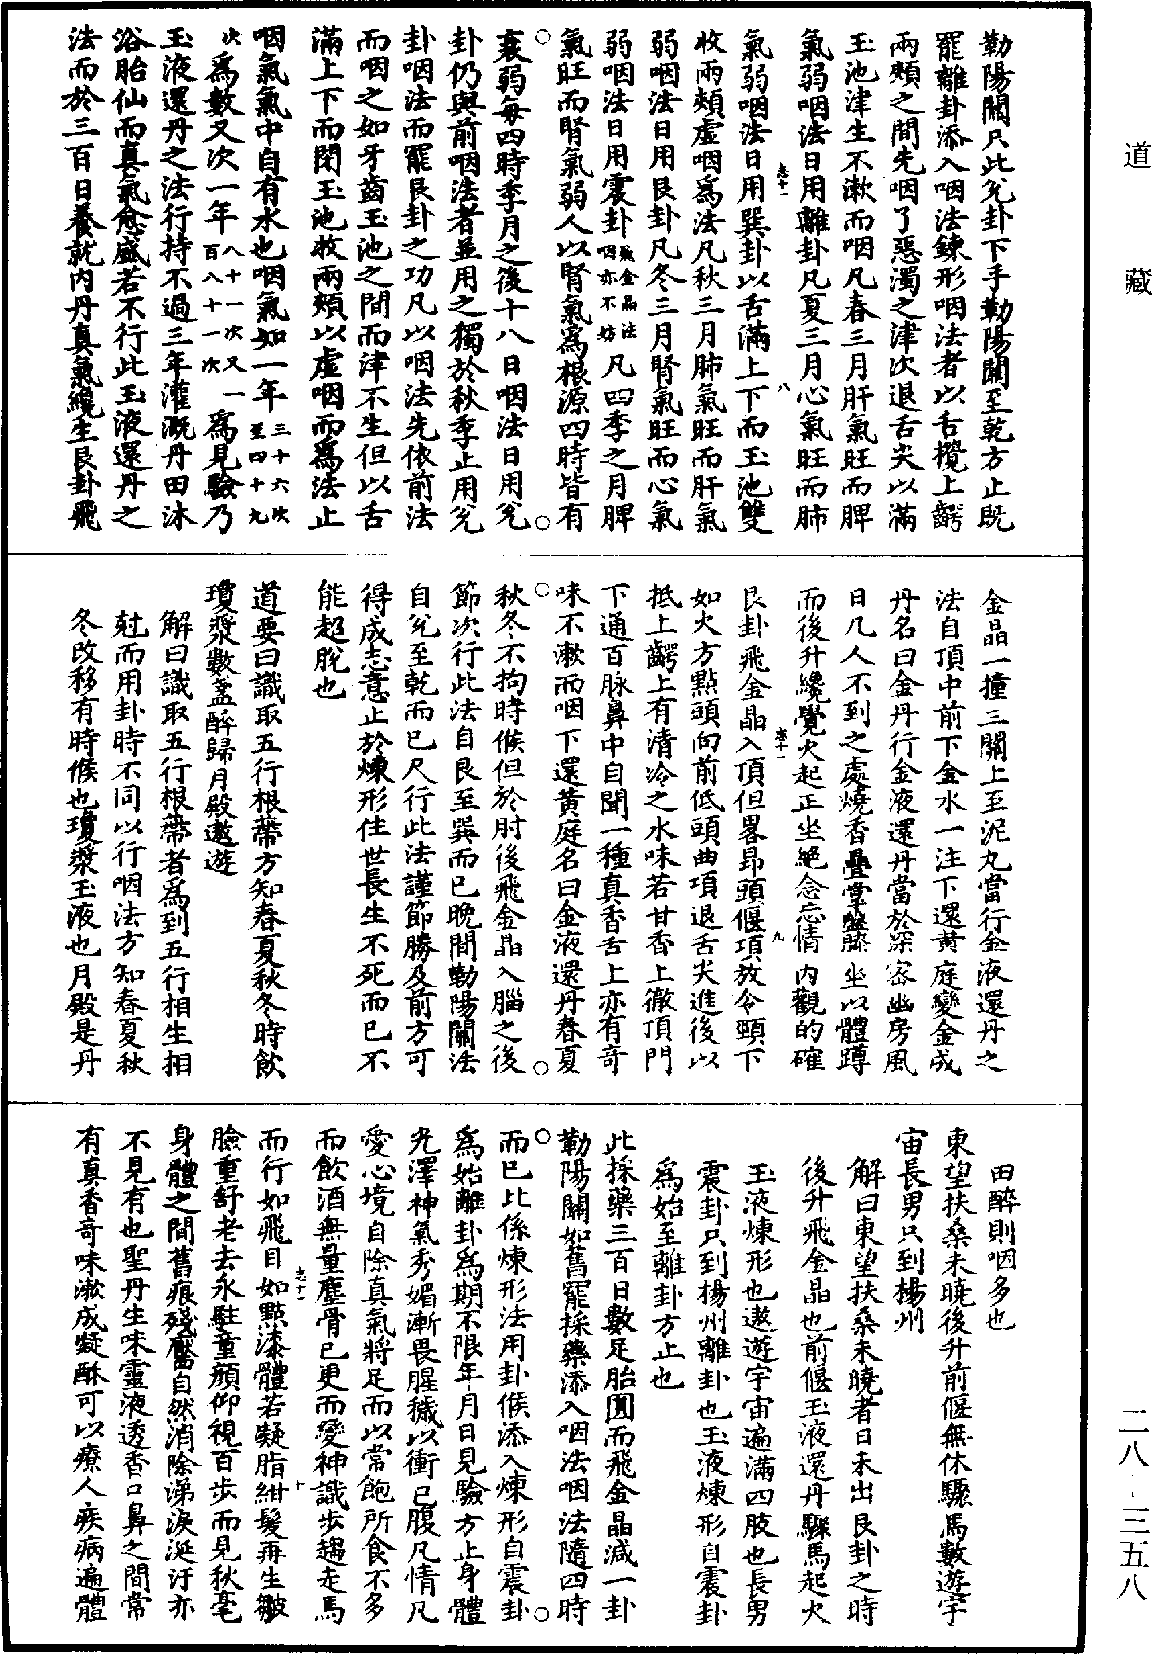 道藏
勒陽關只此兊卦下手勒陽關至乾方止既
罷離卦添入咽法鍊形咽法者以舌攪上齶
兩頰之間先咽了惡濁之津次退舌尖以滿
玉池津生不漱而咽凡春三月肝氣旺而脾
氣弱咽法日用離卦凡夏三月心氣旺而肺
氣弱咽法日用巽卦以舌滿上下而玉池雙
收兩頰虛咽爲法凡秋三月肺氣旺而肝氣
弱咽法日用艮卦凡冬三月腎氣旺而心氣
弱咽法日用震卦飛金晶法咽亦不妨凡四季之月脾
氣旺而腎氣弱人以腎氣爲根源四時皆有
衰弱每四時季月之後十八日咽法日用兊
卦仍與前咽法者並用之獨於秋季止用兊
卦咽法而罷艮卦之功凡以咽法先依前法
而咽之如牙齒玉池之間而津不生但以舌
滿上下而閉玉池收兩頰以虛咽而爲法止
咽氣氣中自有水也咽氣如一年三十六次至四十九
次爲數又次一年八十一次又一百八十一次爲見驗乃
玉液還丹之法行持不過三年灌溉丹田沐
浴胎仙而真氣愈盛若不行此玉液還丹之
法而於三百日養就內丹真氣纔生艮卦飛
金晶一撞三關上至泥丸當行金液還丹之
法自頂中前下金水一注下還黄庭變金成
丹名曰金丹行金液還丹當於深密幽房風
日凡人不到之處燒香疊掌盤膝坐以體蹲
而後升纔覺火起正坐絕念忘情內觀的確
艮卦飛金晶入頂但畧昻頭偃項放令頸下
如火方點頭向前低頭曲項退舌尖進後以
抵上齶上有清冷之水味若甘香上徹頂門
下通百脉鼻中自聞一種真香舌上亦有奇
味不漱而咽下還黄庭名曰金液還丹春夏
秋冬不拘時候但於肘後飛金晶入腦之後
節次行此法自艮至巽而已晚間勒陽關法
自兊至乾而已凡行此法謹節勝及前方可
得成志意止於煉形住世長生不死而已不
能超脫也
道要曰識取五行根蔕方知春夏秋冬時飲
瓊漿數盃醉歸月殿遨遊
解曰識取五行根蔕者爲到五行相生相
尅而用卦時不同以行咽法方知春夏秋
冬改移有時候也瓊漿玉液也月殿是丹
田醉則咽多也
東望扶桑未曉後升前偃無休驟馬數遊宇
宙長男只到楊州
解曰東望扶桑未曉者日未出艮卦之時
後升飛金晶也前偃玉液還丹驟馬起火
玉液煉形也遨遊宇宙遍滿四肢也長男
震卦只到楊州離卦也玉液煉形自震卦
爲始至離卦方止也
此採藥三百日數足胎圓而飛金晶減一卦
勒陽關如舊罷採藥添入咽法咽法隨四時
而已比係煉形法用卦候添入煉形自震卦
爲始離卦爲期不限年月日見驗方止身體
光澤神氣秀媚漸畏腥穢以衝已腹凡情凡
愛心境自除真氣將足而以常飽所食不多
而飲酒無量塵骨已更而變神識步趨走馬
而行如飛目如點漆體若凝脂紺髮再生皺
臉重舒老去永駐童顏仰視百步而見秋毫
身體之間舊痕殘靨自然消除涕淚涎汗亦
不見有也聖丹生味靈液透香口鼻之間常
有真香奇味漱成凝酥可以療人疾病遍體
志十一
八
志十一
九
志十一
十
二八-三五八